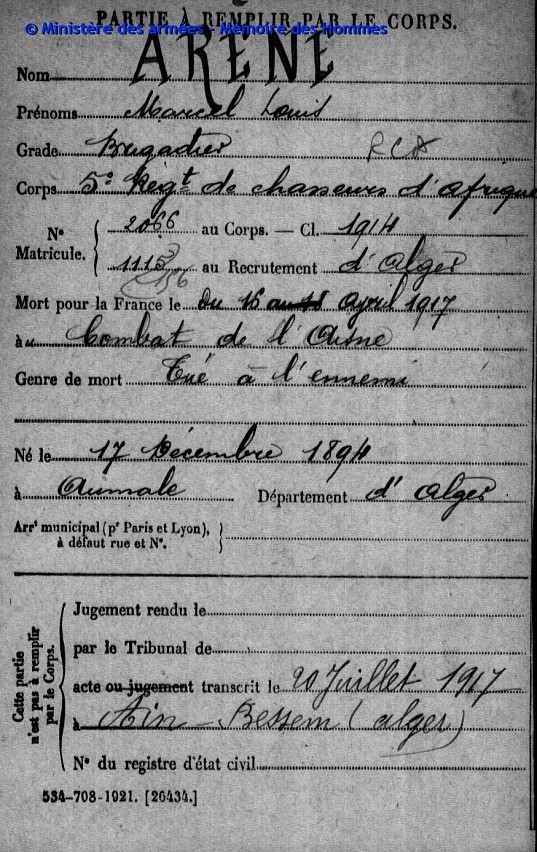 PARTIE À REMPLIR PAR LE CORPS.
© Ministère des armées - Mémoire des Hommes
Nom ARÈNE
Prénoms Marcel Louis
Grade Brigadier RCA
Corps 5e Regt de chasseurs d'afrique
N° Matricule. { 2066 au Corps. — Cl. 1914
1115 au Recrutement d'Alger
Mort pour la France le du 16 au 18 april 1917
à u Combat de l'Aisne
Genre de mort Tué à l'ennemi
Né le 17 Décembre 1894
à Aumale Département d'Alger
Arrt municipal (pr Paris et Lyon), à défaut rue et N°.
Cette partie n'est pas à remplir par le Corps.
Jugement rendu le
par le Tribunal de
acte ou jugement transcrit le 20 Juillet 1917
à Aïn-Bessem (alger)
N° du registre d'état civil
534-708-1921. [26434.]